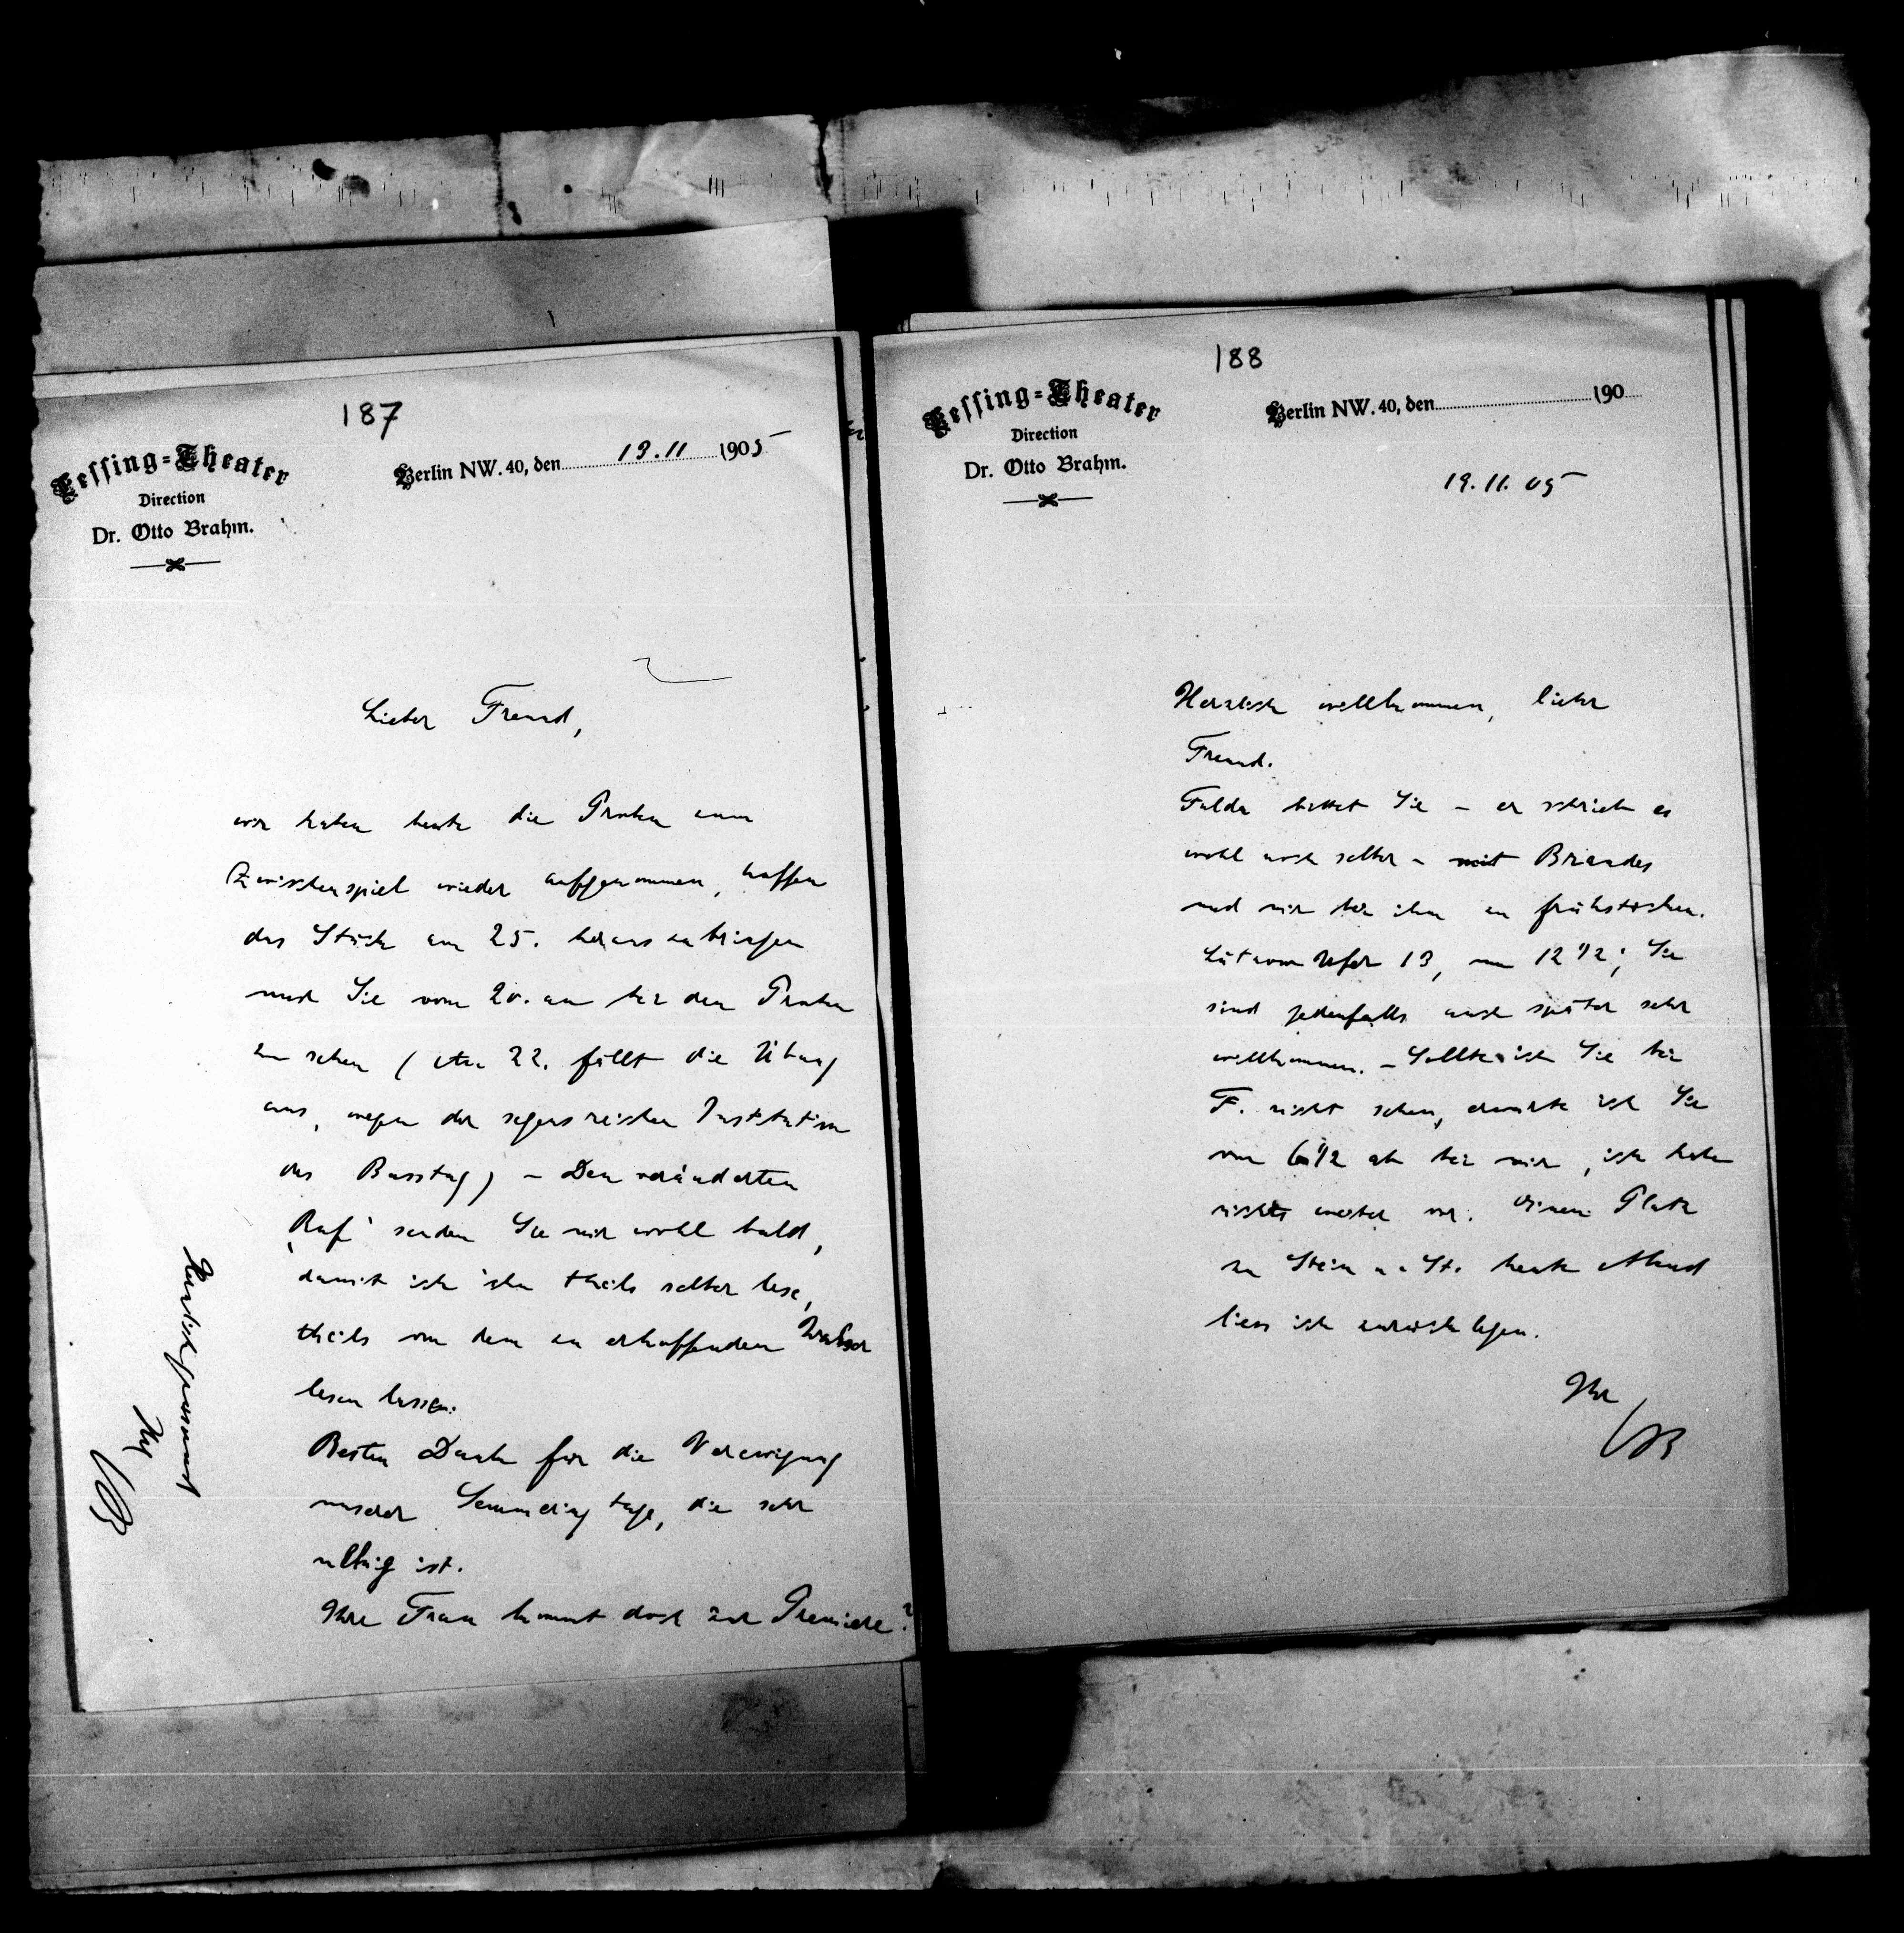 187
Lessing-Theater
Direction
Dr. Otto Brahm.
Berlin NW. 40, den 13.11 1905
Lieber Freund,
wir haben heute die Proben zum
Zwischenspiel wieder aufgenommen, hoffen
das Stück am 25. herauszubringen
und Sie vom 20. an bei den Proben
zu sehen (den 22. fällt die Übung
aus, wegen der segensreichen Institution
des Busstag) – Den veränderten
„Ruf“ senden Sie mir wohl bald,
damit ich ihn theils selber lese,
theils von dem zu erhoffenden
lesen lasse.
Besten Dank für die Verewigung
unserer Semmering tage, die sehr
ulkig ist.
Ihre Frau kommt doch zur Premiere?
Herzlich grüssend
Ihr
OB
188
Lessing-Theater
Direction
Dr. Otto Brahm.
Berlin NW. 40, den 190
19.11.05
Herzlich willkommen, lieber
Freund.
Fulda bittet Sie – er schrieb es
wohl auch selber – mit Brandes
und mir bei ihm zu frühstücken.
Lützow Ufer 13, um 12 1/2; Sie
sind jedenfalls auch später sehr
willkommen. – Sollte ich Sie bei
F. nicht sehen, erwarte ich Sie
von 6 1/2 ab bei mir, ich habe
nichts weiter vor. Einen Platz
zu Stein u. St. heute Abend
liess ich zurücklegen.
Ihr
OB